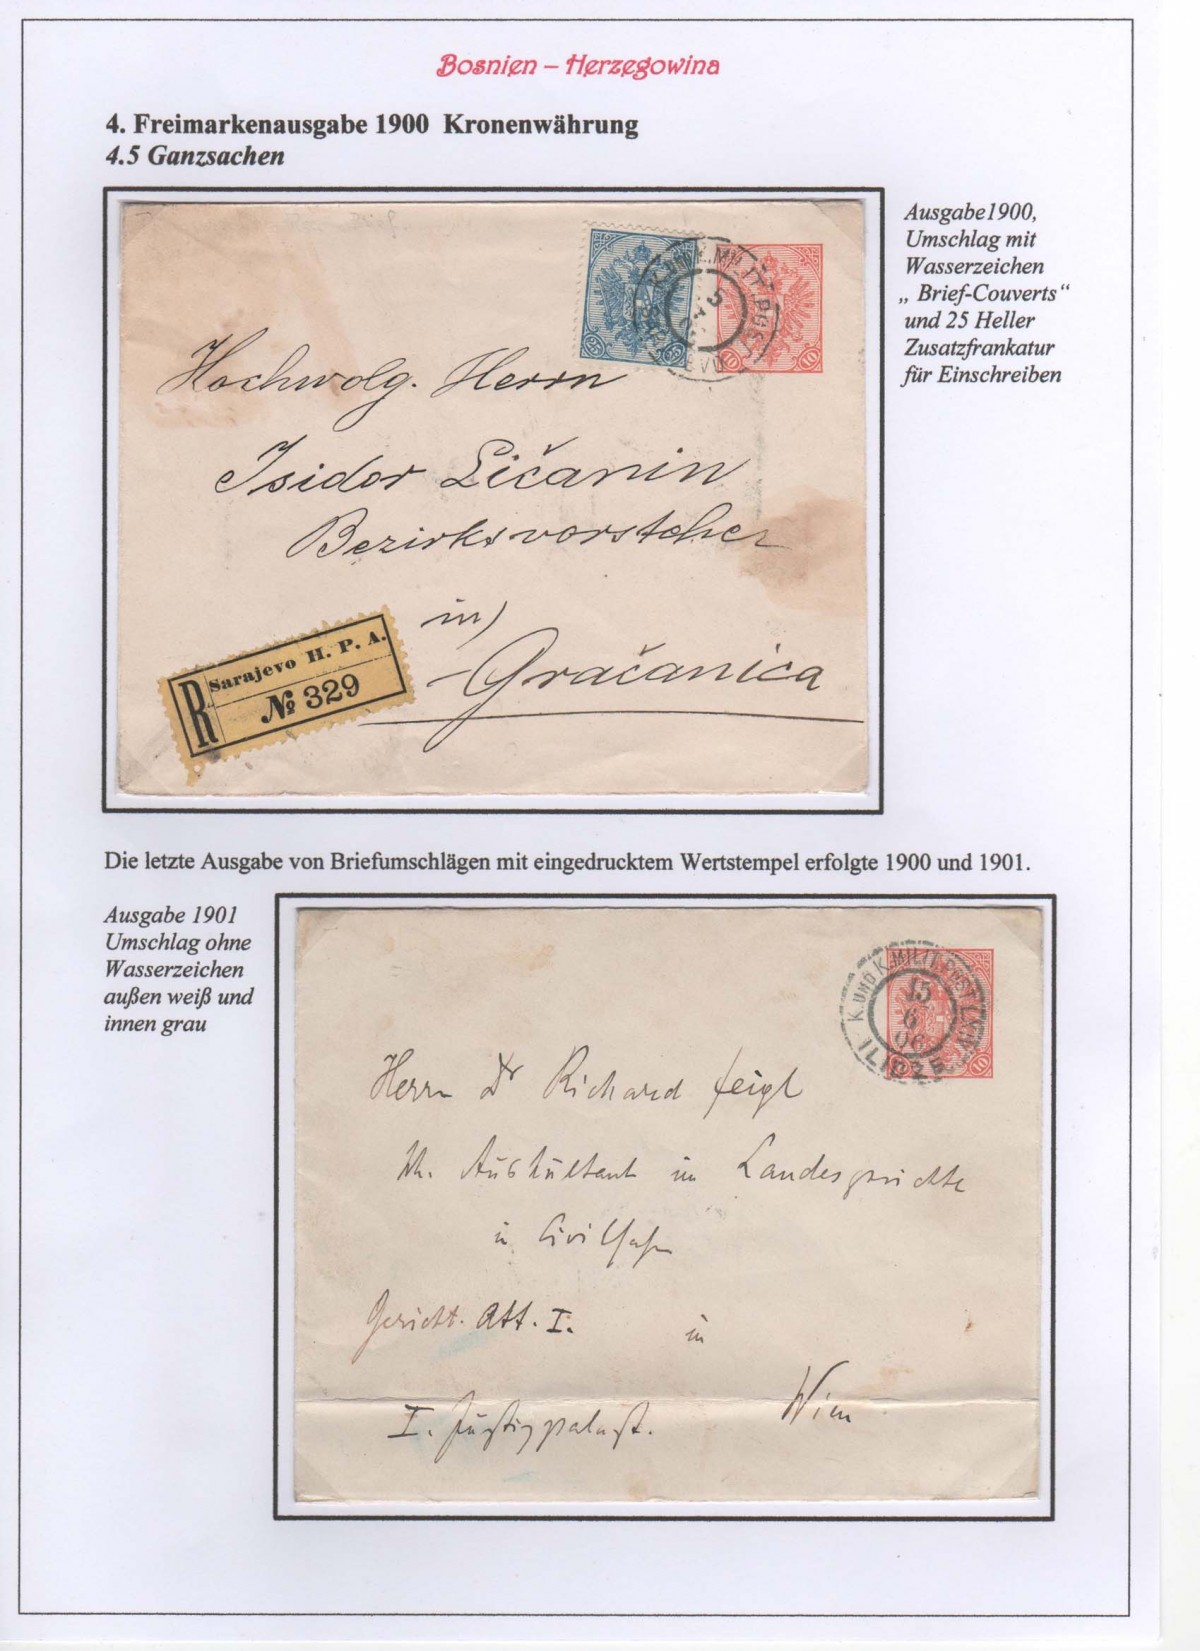 Bosnien – Herzegowina
4. Freimarkenausgabe 1900 Kronenwährung
4.5 Ganzsachen
Ausgabe1900,
Umschlag mit
Wasserzeichen
„ Brief-Couverts“
und 25 Heller
Zusatzfrankatur
für Einschreiben
25 25
10 10
Hochwolg. Herrn
Isidor Ličanin
Bezirksvorsteher
in
Gračanica
R
Sarajevo H. P. A.
№ 329
Die letzte Ausgabe von Briefumschlägen mit eingedrucktem Wertstempel erfolgte 1900 und 1901.
Ausgabe 1901
Umschlag ohne
Wasserzeichen
außen weiß und
innen grau
K. UND K. MILIT. POST
15
6
06
ILIDZE
10
Herrn Dr Richard Feigl
Auskultant im Landesgerichte
in Civilsachen
Gericht. Abt. I.
in
Wien
I. Justizpalast.